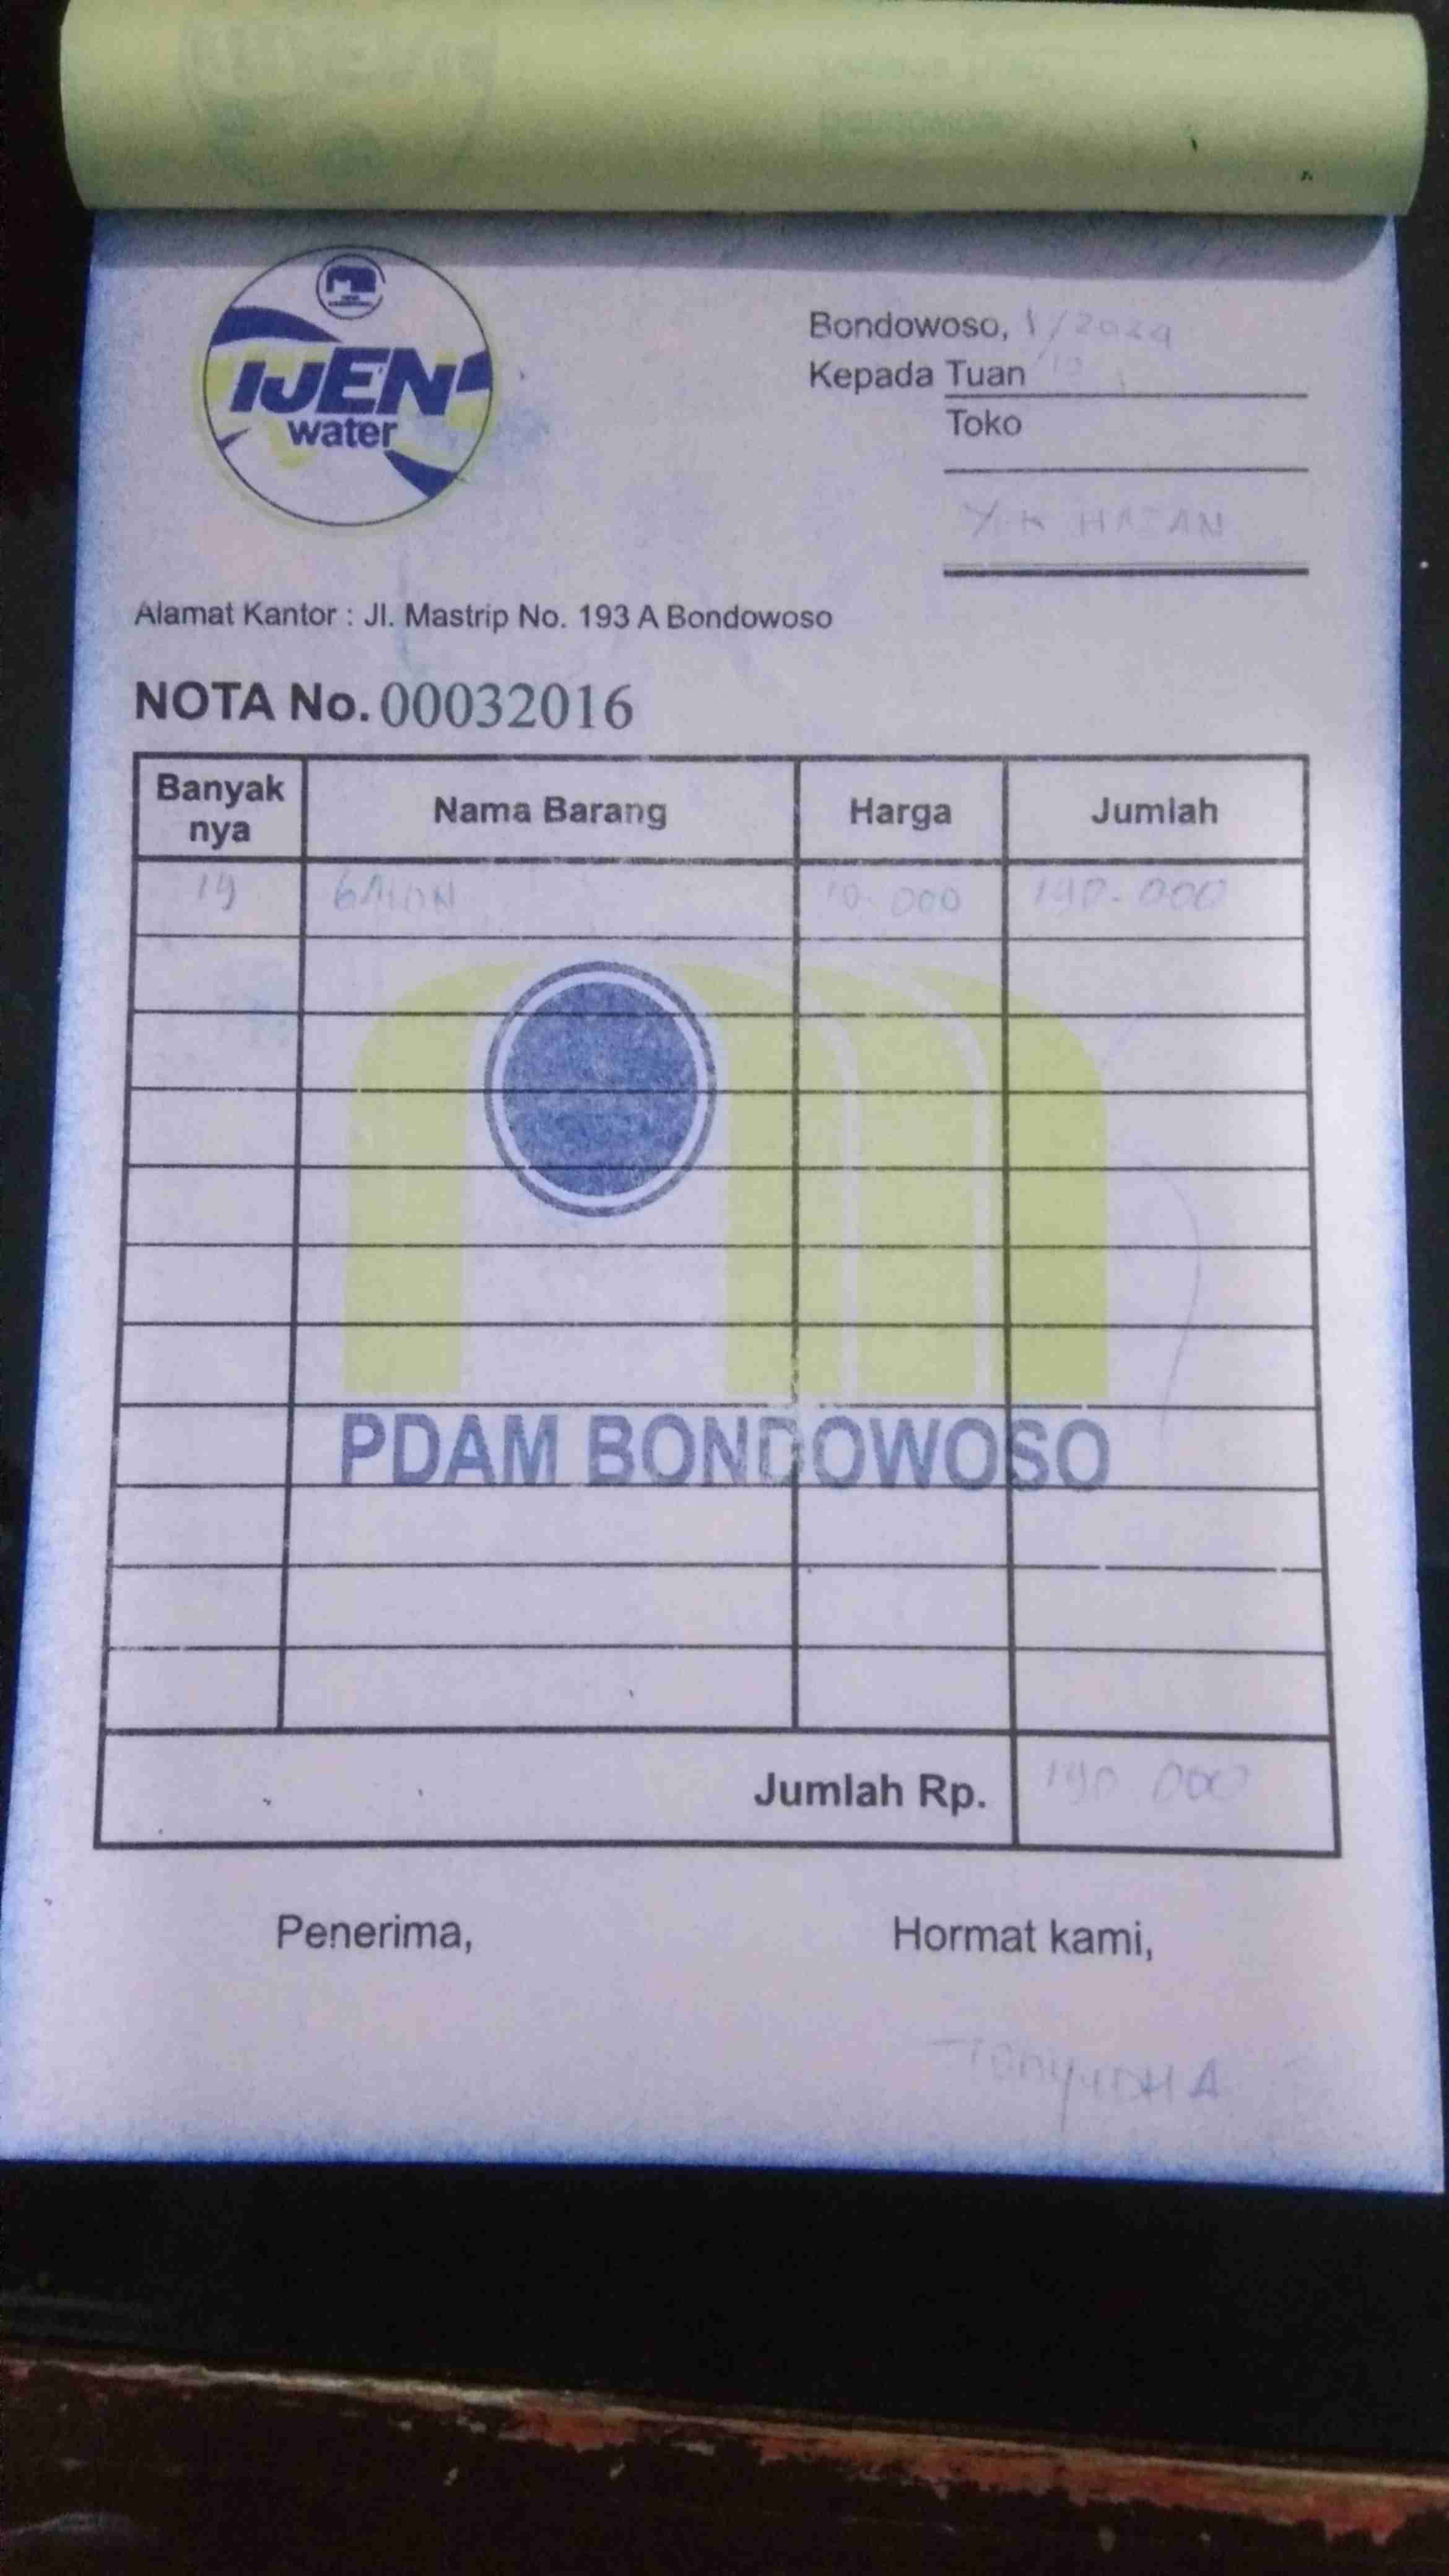 IJEN
water
Bondowoso, 1/2024
10
Kepada Tuan
Toko
HASAN
Alamat Kantor : Jl. Mastrip No. 193 A Bondowoso
NOTA No. 00032016
Banyak nya Nama Barang Harga Jumlah
19 GALON 10.000 190.000
PDAM BONDOWOSO
Jumlah Rp. 190 000
Penerima, Hormat kami,